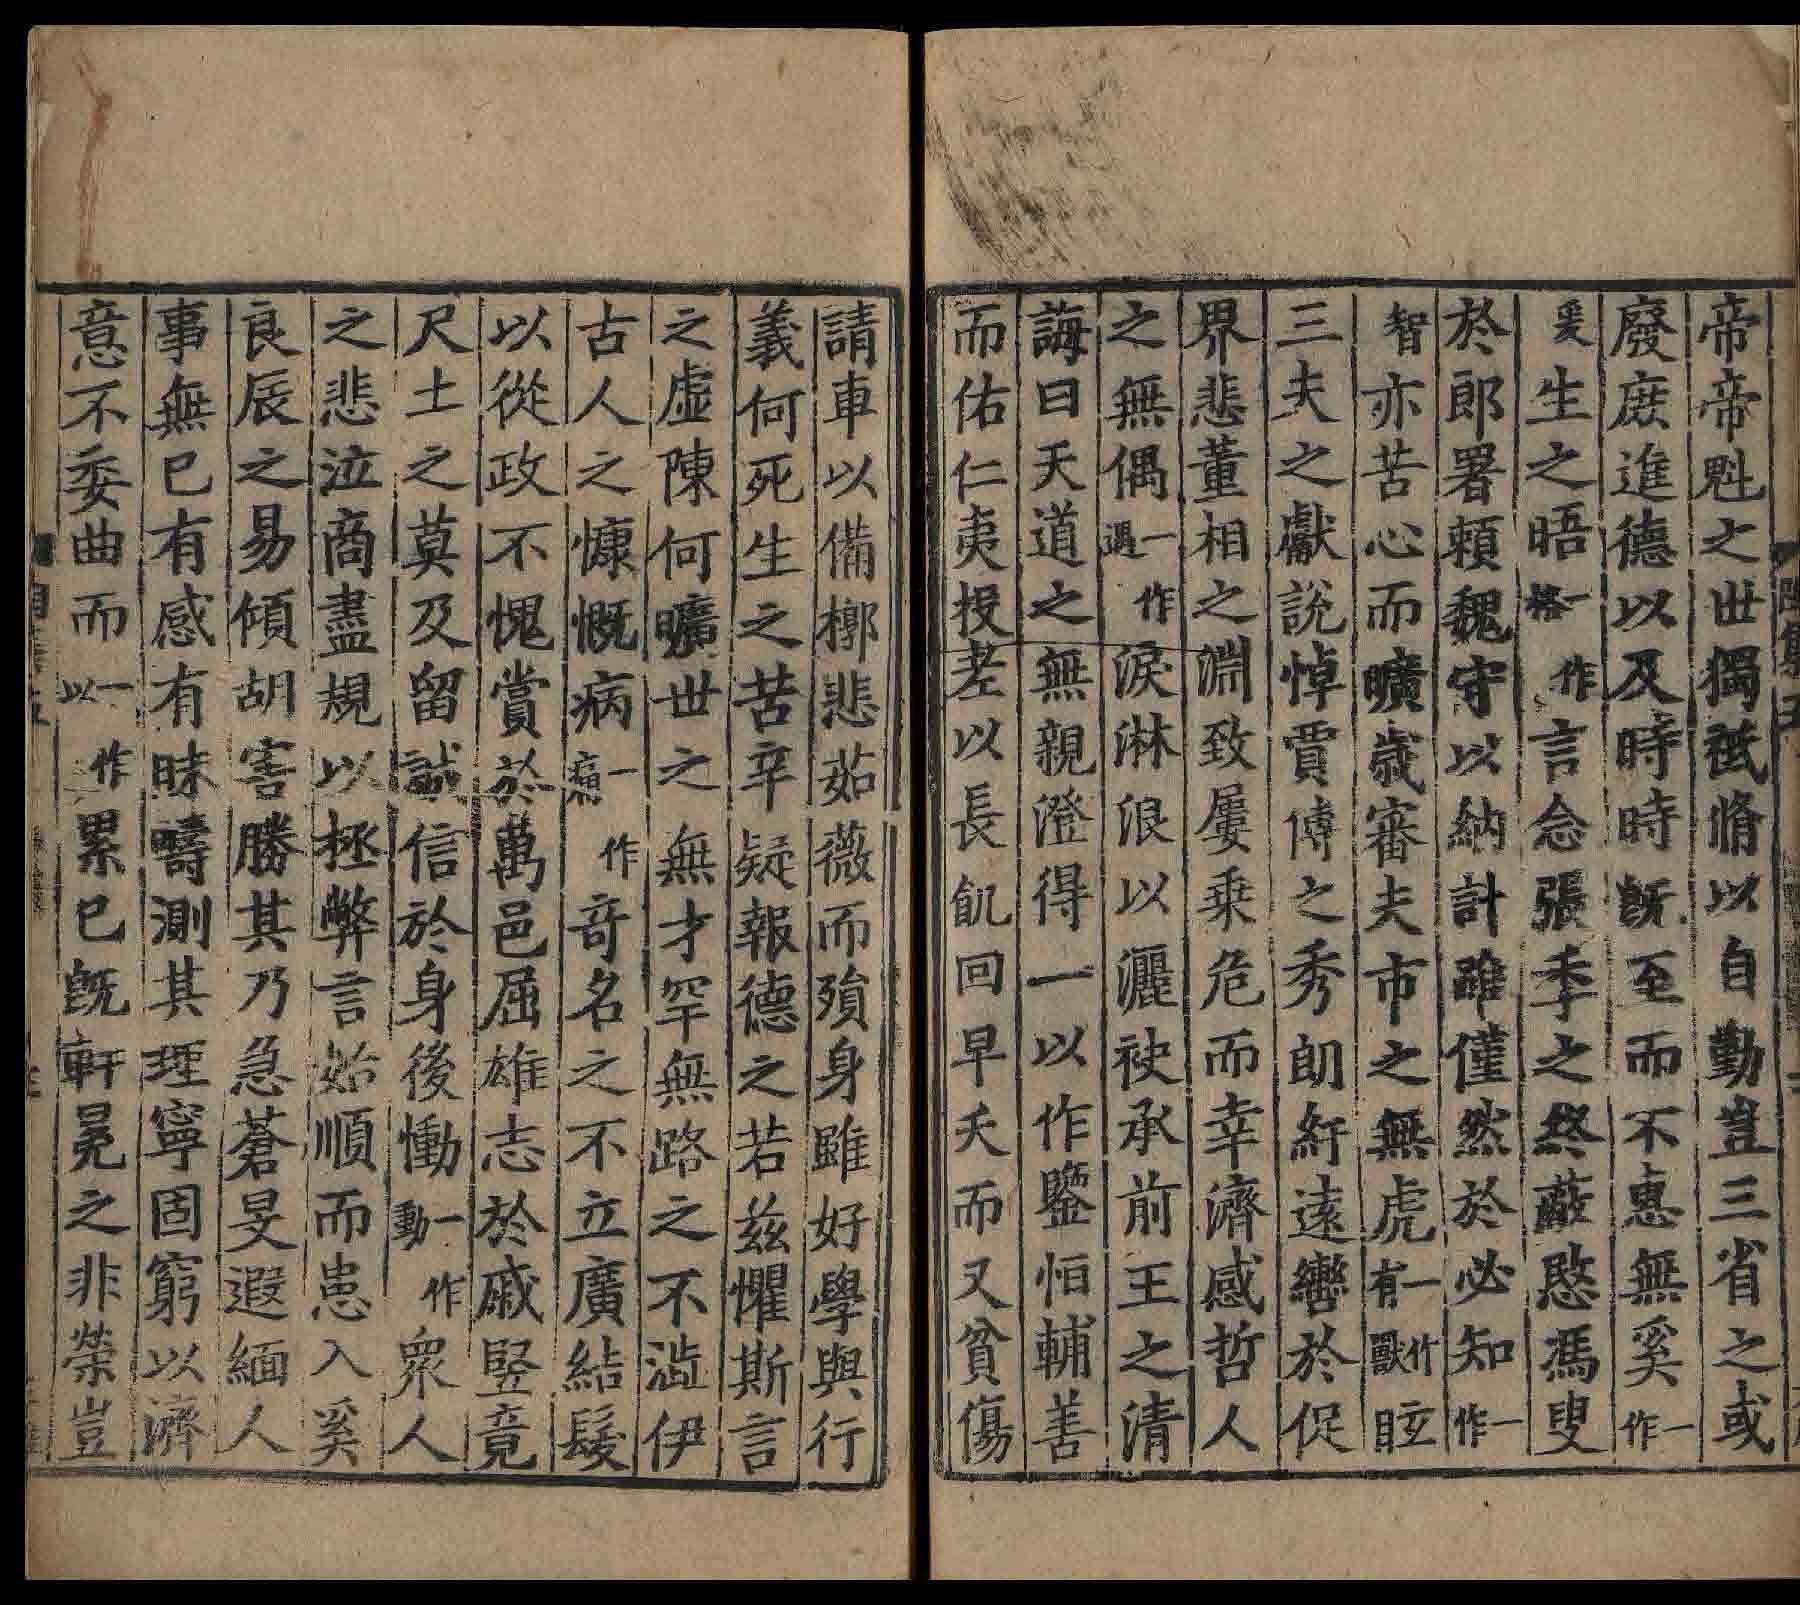 帝帝魁之世獨祗脩以自勤豈三省之或
廢庶進德以及時時旣至而不惠無奚一作
爰生之晤一作格言念張季之終蔽愍馮叟
於郎署頼魏守以納計雖僅然於必知一作
智亦苦心而曠歲審夫市之無虎一作有獸眩
三夫之獻說悼賈傅之秀朗紆遠轡於促
界悲董相之淵致屢乗危而幸濟感哲人
之無偶一作遇淚淋浪以灑袂承前王之清
誨曰天道之無親澄得一以作鑒恒輔善
而佑仁夷投老以長飢回早夭而又貧傷
請車以備槨悲茹薇而殞身雖好學與行
義何死生之苦辛疑報德之若兹懼斯言
之虛陳何曠世之無才罕無路之不澁伊
古人之慷慨病一作痛奇名之不立廣結髮
以從政不愧賞於萬邑屈雄志於戚竪竟
尺土之莫及留誠信於身後慟一作動衆人
之悲泣商盡規以拯弊言始順而患入奚
良辰之易傾胡害勝其乃急蒼旻遐緬人
事無已有感有昧疇測其理寧固窮以濟
意不委曲而一作以累已旣軒冕之非榮豈